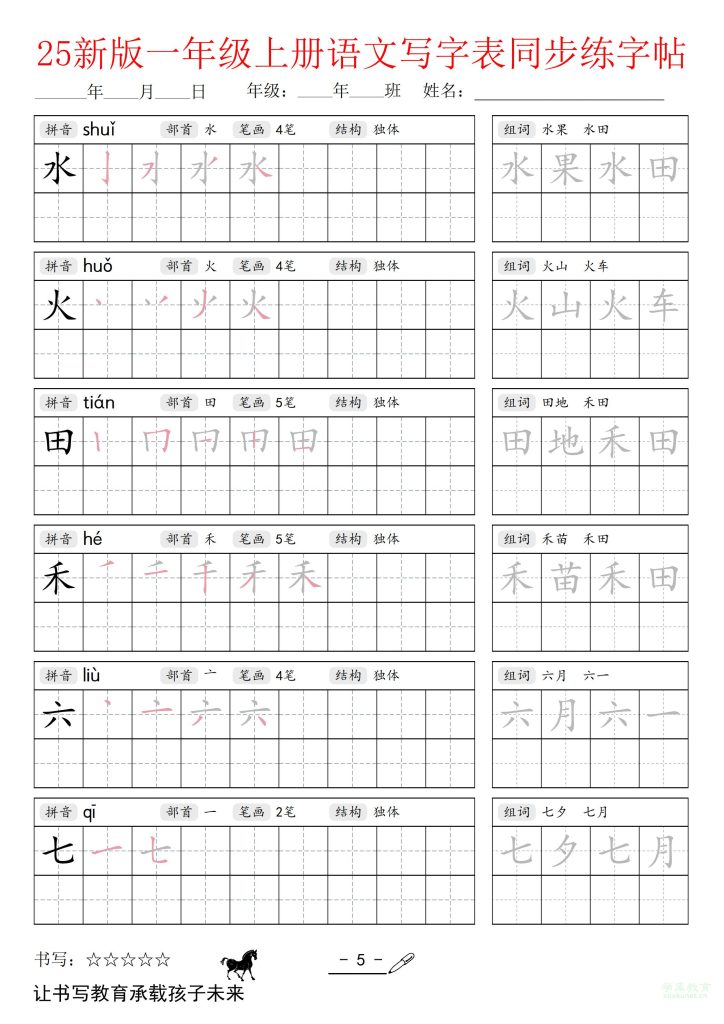 25新版一年级上册语文写字表同步练字帖
______年____月____日 年级：____年____班 姓名：____________________
拼音 shuǐ 部首 水 笔画 4笔 结构 独体 组词 水果 水田
水 水 果 水 田
拼音 huǒ 部首 火 笔画 4笔 结构 独体 组词 火山 火车
火 火 火 山 火 车
拼音 tián 部首 田 笔画 5笔 结构 独体 组词 田地 禾田
田 田 田 地 禾 田
拼音 hé 部首 禾 笔画 5笔 结构 独体 组词 禾苗 禾田
禾 禾 禾 苗 禾 田
拼音 liù 部首 亠 笔画 4笔 结构 独体 组词 六月 六一
六 六 六 月 六 一
拼音 qī 部首 一 笔画 2笔 结构 独体 组词 七夕 七月
七 一 七 七 夕 七 月
书写：☆☆☆☆☆
- 5 -
让书写教育承载孩子未来